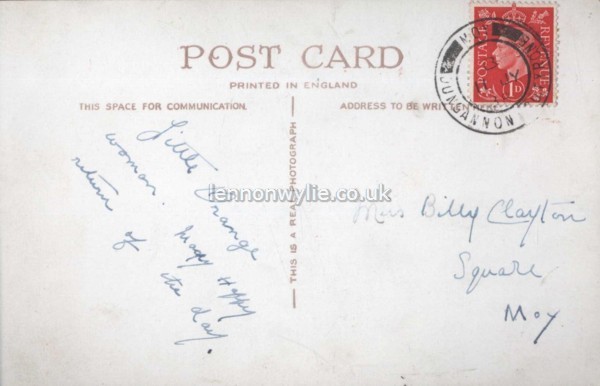 POST CARD
PRINTED IN ENGLAND
THIS SPACE FOR COMMUNICATION.
ADDRESS TO BE WRITTEN
Little Orange
woman. Many Happy
return of the day.
THIS IS A REAL PHOTOGRAPH
lennonwylie.co.uk
POSTAGE
REVENUE
1D
MOY
DUNGANNON
Miss Billy Clayton
Square
Moy